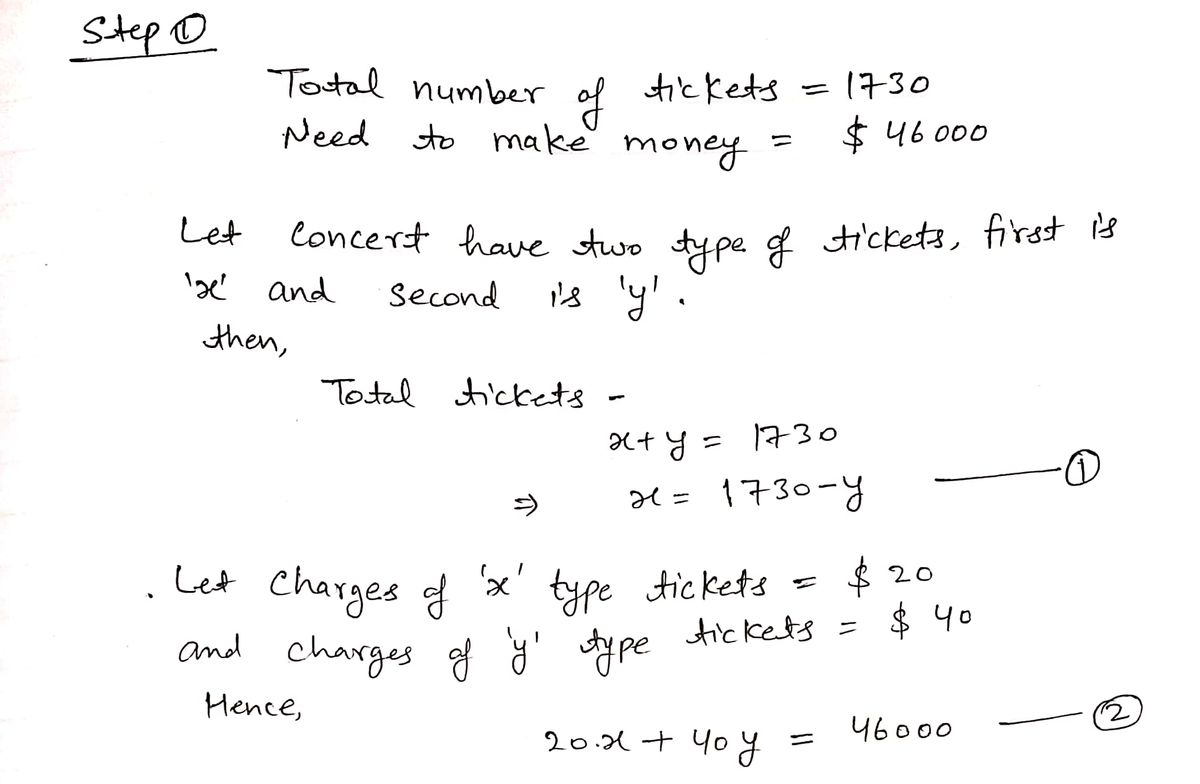 Step ①
Total number of tickets = 1730
Need to make money = $ 46000
Let Concert have two type of tickets, first is
'x' and second is 'y'.
then,
Total tickets -
x+y = 1730
⇒ x = 1730-y —— ①
. Let Charges of 'x' type tickets = $ 20
and charges of 'y' type tickets = $ 40
Hence,
20.x + 40y = 46000 —— ②